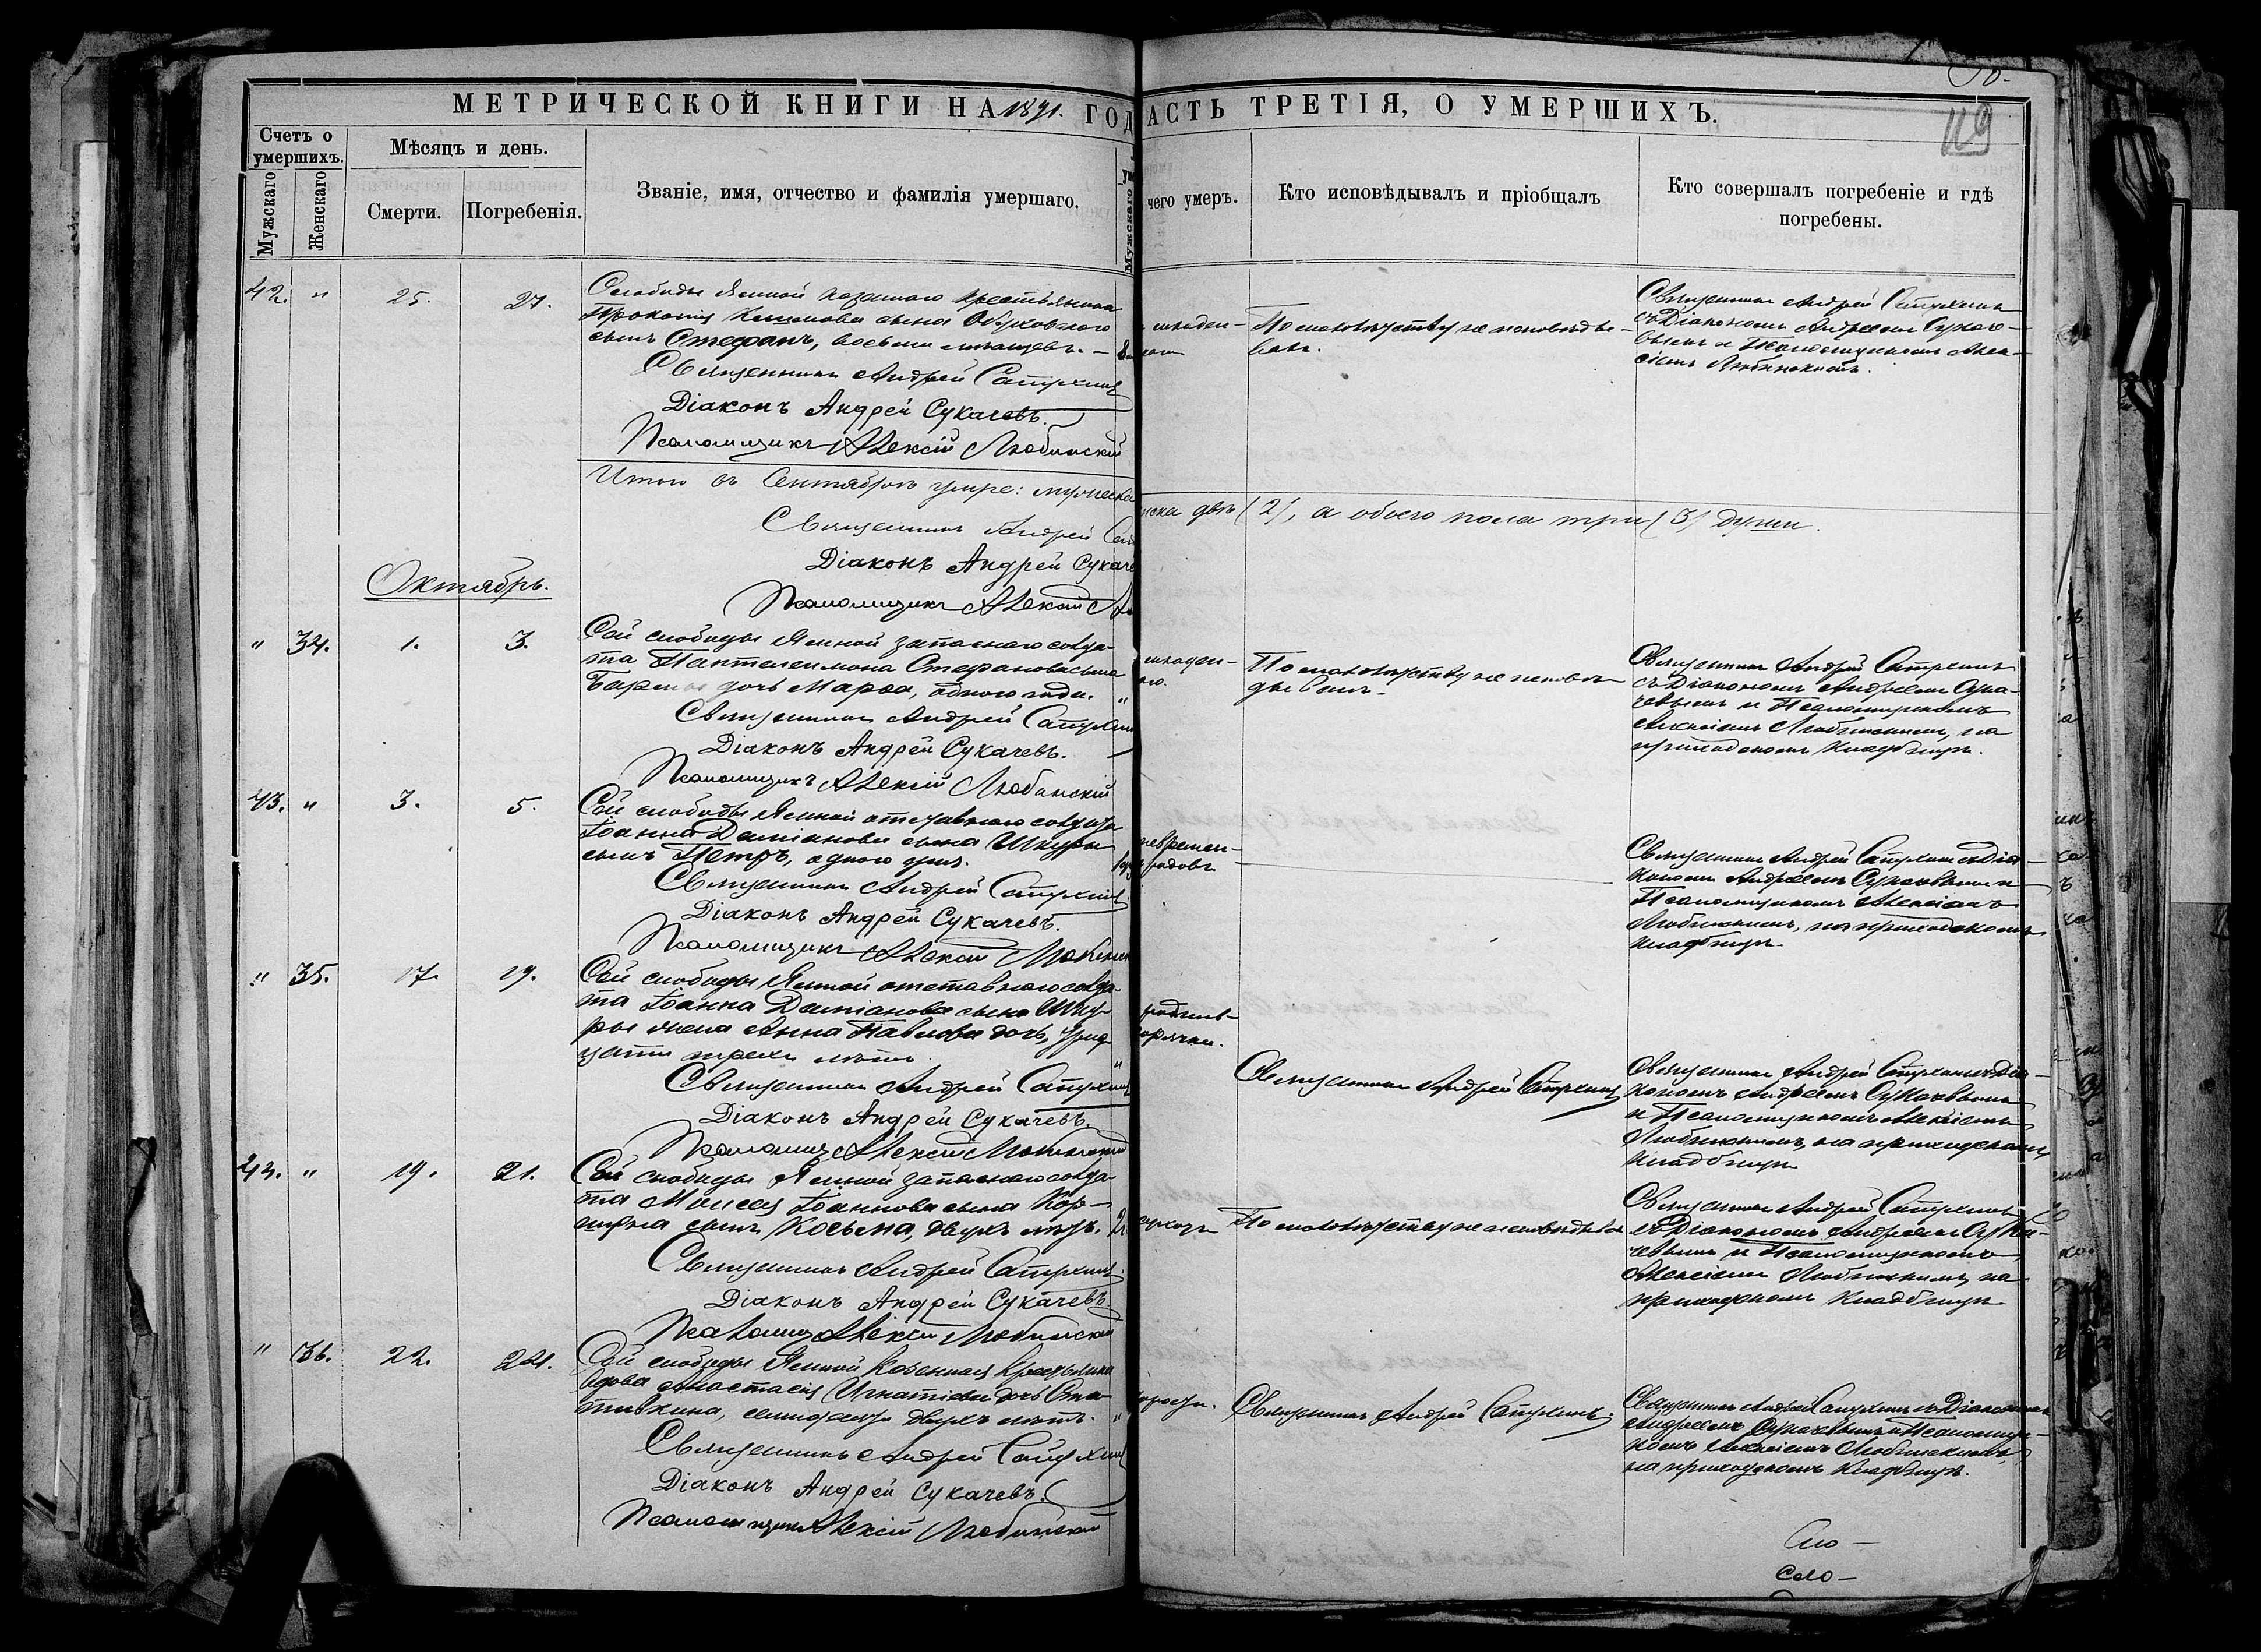 МЕТРИЧЕСКОЙ КНИГИ НА 1891. ГОД
АСТЬ ТРЕТІЯ, О УМЕРШИХЪ.
119
Счетъ о умершихъ.
Мужскаго
Женскаго
Мѣсяцъ и день.
Смерти.
Погребенія.
Званіе, имя, отчество и фамилія умершаго.
Мужскаго
чего умеръ.
Кто исповѣдывалъ и пріобщалъ
Кто совершалъ погребеніе и гдѣ
погребены.
42. " 25. 27.
Слободы Ямной казеннаго крестьянина
Прокопія сына
сынъ Стефанъ, восьми мѣсяцевъ.
Священникъ Андрей Сапухинъ
Діаконъ Андрей Сукачевъ.
Псаломщикъ Алексій Любинскій
младен-
По малолѣтству не исповѣды-
ванъ.
Священникъ Андрей Сапухинъ
съ Діакономъ Андреемъ Сукаче-
вымъ и Псаломщикомъ Алек-
сіемъ Любинскимъ.
Итого въ Сентябрѣ умре: мужеска
нска двѣ (2), а обоего пола три (3) души.
Священникъ Андрей Сап
Діаконъ Андрей Сукаче
Псаломщикъ Алексій Л
Октябрь.
" 34. 1. 3.
Сей слободы Ямной запаснаго солда-
та Пантелеимона Стефанова сына
дочь Марѳа, одного года. "
Священникъ Андрей Сапухин
Діаконъ Андрей Сукачевъ.
Псаломщикъ Алексій Любинскій
младен-
По малолѣтству не исповѣ-
дывана.
Священникъ Андрей Сапухинъ
съ Діакономъ Андреемъ Сука-
чевымъ и Псаломщикомъ
Алексіемъ Любинскимъ, на
приходскомъ кладбищѣ.
43. " 3. 5.
Сей слободы Ямной отставнаго солдата
Іоанна Даміанова сына Шкуры
сынъ Петръ, одного дня.
Священникъ Андрей Сапухинъ
Діаконъ Андрей Сукачевъ.
Псаломщикъ Алексій Любинск
невремен-
родовъ
Священникъ Андрей Сапухинъ съ Діа-
кономъ Андреемъ Сукачевымъ и
Псаломщикомъ Алексіемъ
Любинскимъ, на приходскомъ
кладбищѣ.
" 35. 17. 19.
Сей слободы Ямной отставнаго солда-
та Іоанна Даміанова сына Шку-
ры жена Анна Павлова дочь, трид-
цати трехъ лѣтъ. "
Священникъ Андрей Сапухинъ
Діаконъ Андрей Сукачевъ.
Псаломщ Алексій Любинскій
родильн-
орячки.
Священникъ Андрей Сапухинъ
Священникъ Андрей Сапухинъ съ Діа-
кономъ Андреемъ Сукачевымъ
и Псаломщикомъ Алексіемъ
Любинскимъ, на приходскомъ
кладбищѣ
44. " 19. 21.
Сей слободы Ямной запаснаго солда-
та Моисея Іоаннова сына Кор-
сынъ Косьма, двухъ лѣтъ. 2
Священникъ Андрей Сапухинъ
Діаконъ Андрей Сукачевъ
Псаломщ Алексій Любинскій
По малолѣтству не исповѣдыванъ
Священникъ Андрей Сапухинъ
съ Діакономъ Андреемъ Сука-
чевымъ и Псаломщикомъ
Алексіемъ Любинскимъ, на
приходскомъ кладбищѣ
" 36. 22. 24.
Сей слободы Ямной казенная крестьянка
вдова Анастасія Игнатіева дочь
семидесяти двухъ лѣтъ. "
Священникъ Андрей Сапухин
Діаконъ Андрей Сукачевъ.
Псаломщикъ Алексій Любинскій
Священникъ Андрей Сапухинъ
Священникъ Андрей Сапухинъ съ Діакономъ
Андреемъ Сукачевымъ и Псаломщи-
комъ Алексіемъ Любинскимъ,
на приходскомъ кладбищѣ.
Сло-